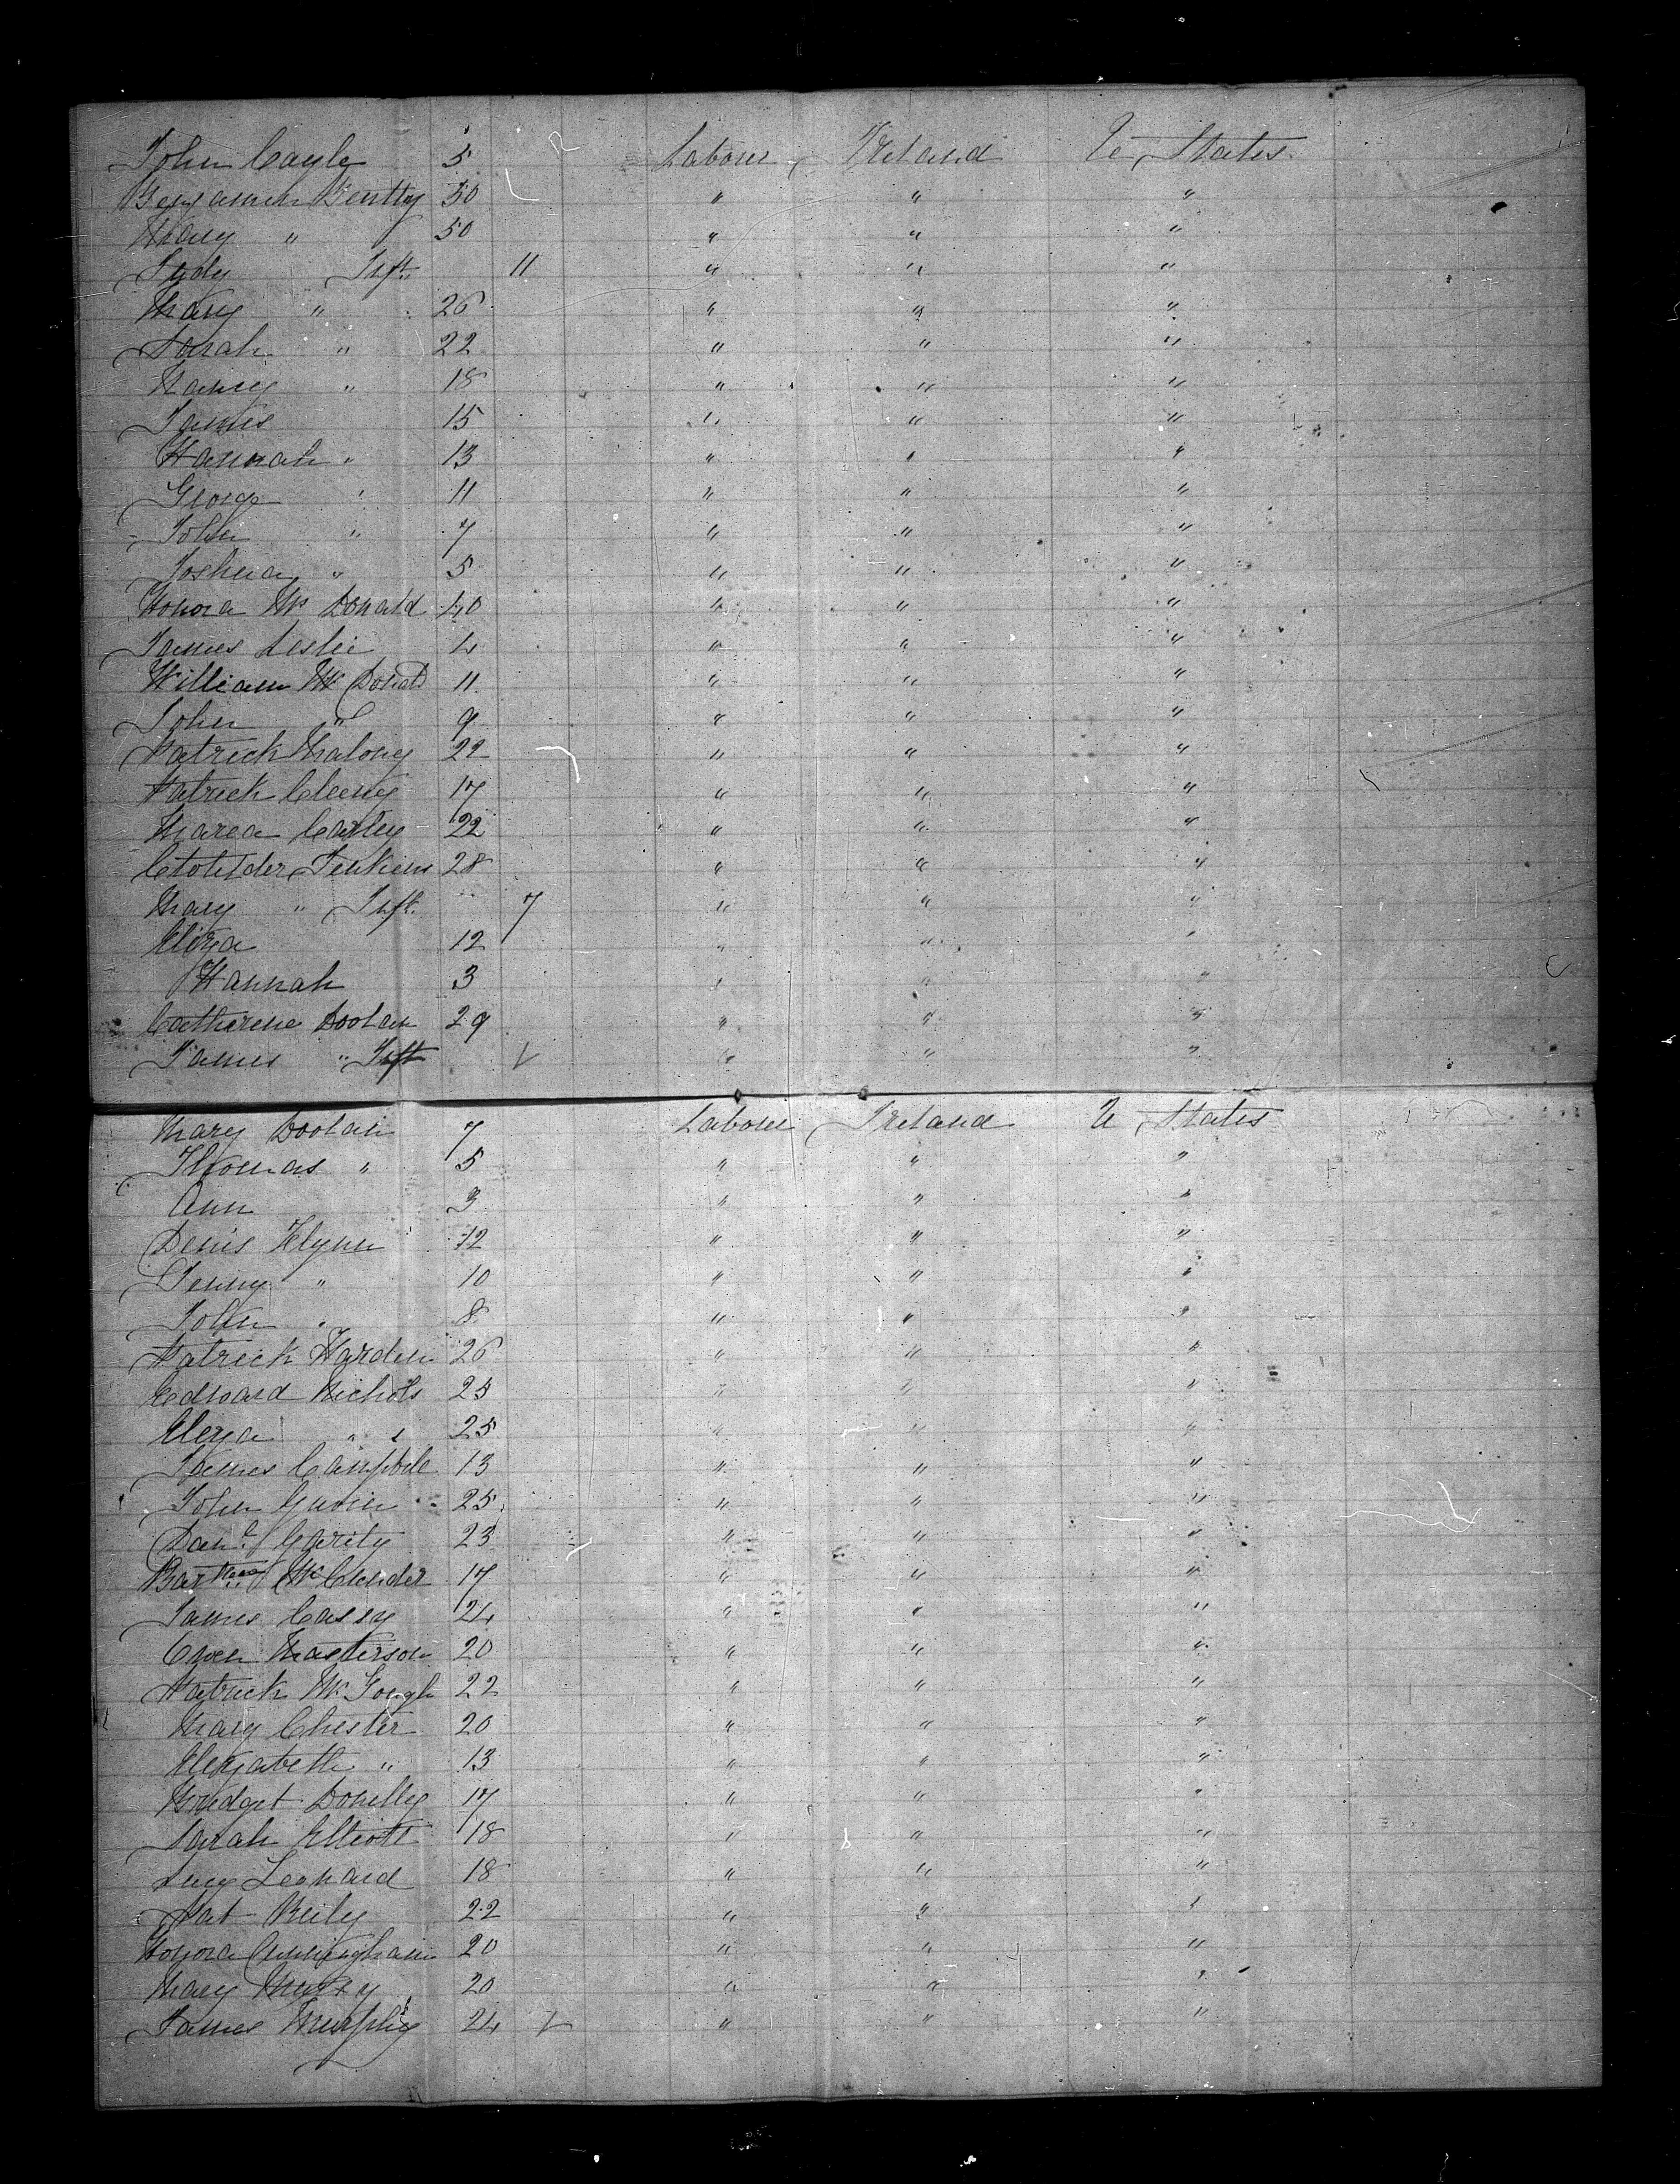 John Cayle 5 Labour Ireland U States
Benjamin Bentty 50 " " "
Mary " 50 " " "
Judy Inft 11 " " "
Mary " 26 " " "
Sarah " 22 " " "
Nancy " 18 " " "
James 15 " " "
Hannah " 13 " " "
George " 11 " " "
John " 7 " " "
Joshua " 5 " " "
Honora Mc Donald 40 " " "
James Leslie 4 " " "
William Mc Donald 11 " " "
John " 9 " " "
Patrick Malony 22 " " "
Patrick Cleeny 17 " " "
Marea Carley 22 " " "
Jenkins 28 " " "
Mary " Inft. 7 " " "
Eliza 12 " " "
Hannah 3 " " "
Catherine Doolan 29 " " "
James " Inft " " "
Mary Doolan 7 Labour Ireland U States
Thomas " 5 " " "
Ann 3 " " "
Denis Flynn 12 " " "
Jenny " 10 " " "
John " 8 " " "
Patrick Harden 26 " " "
Edward Nichols 25 " " "
Eliza " 25 " " "
James Campbell 13 " " "
John 25 " " "
Danl Garity 23 " " "
Mc 17 " " "
James Casey 24 " " "
Owen Masterson 20 " " "
Patrick Mc Gough 22 " " "
Mary Chester 20 " " "
Elizabeth " 13 " " "
Bridget Donelly 17 " " "
Sarah Elliott 18 " " "
Leonard 18 " " "
Pat Reily 22 " " "
Honora Cunningham 20 " " "
Mary 20 " " "
James Murphy 24 " " "